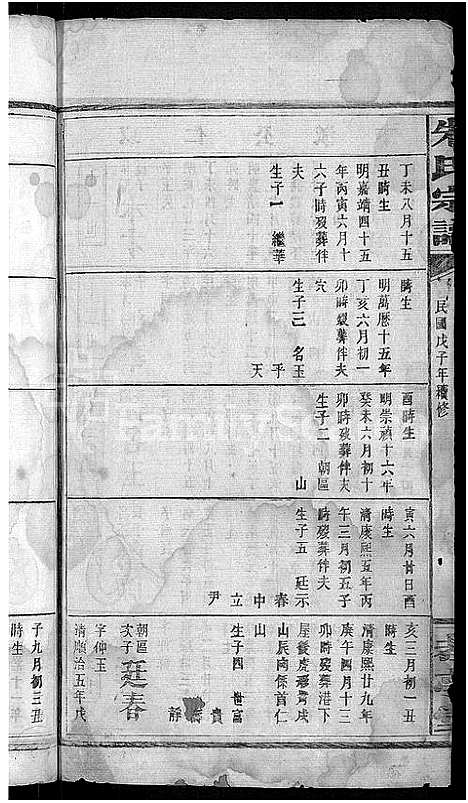 朱氏宗譜
民國戊子年續修
丁未八月十五
丑時生
明嘉靖四十五
年丙寅六月十
六子時歿葬伴
夫
生子一 繼華
時生
明萬曆十五年
丁亥六月初一
卯時歿葬伴夫
穴
生子三 名玉
乎
天
酉時生
明崇禎十六年
癸未六月初十
卯時歿葬伴夫
生子二 朝區
山
寅六月廿日酉
時生
清康熙五年丙
午三月初五子
時歿葬伴夫
生子五 廷示
春
中
立
尹
亥三月初一丑
時生
清康熙廿九年
庚午四月十三
卯時歿葬港下
屋後虎形
山辰向保首仁
山
生子四 世富
貴
靜
朝區
次子 廷春
字仰玉
清順治五年戊
子九月初三丑
時生